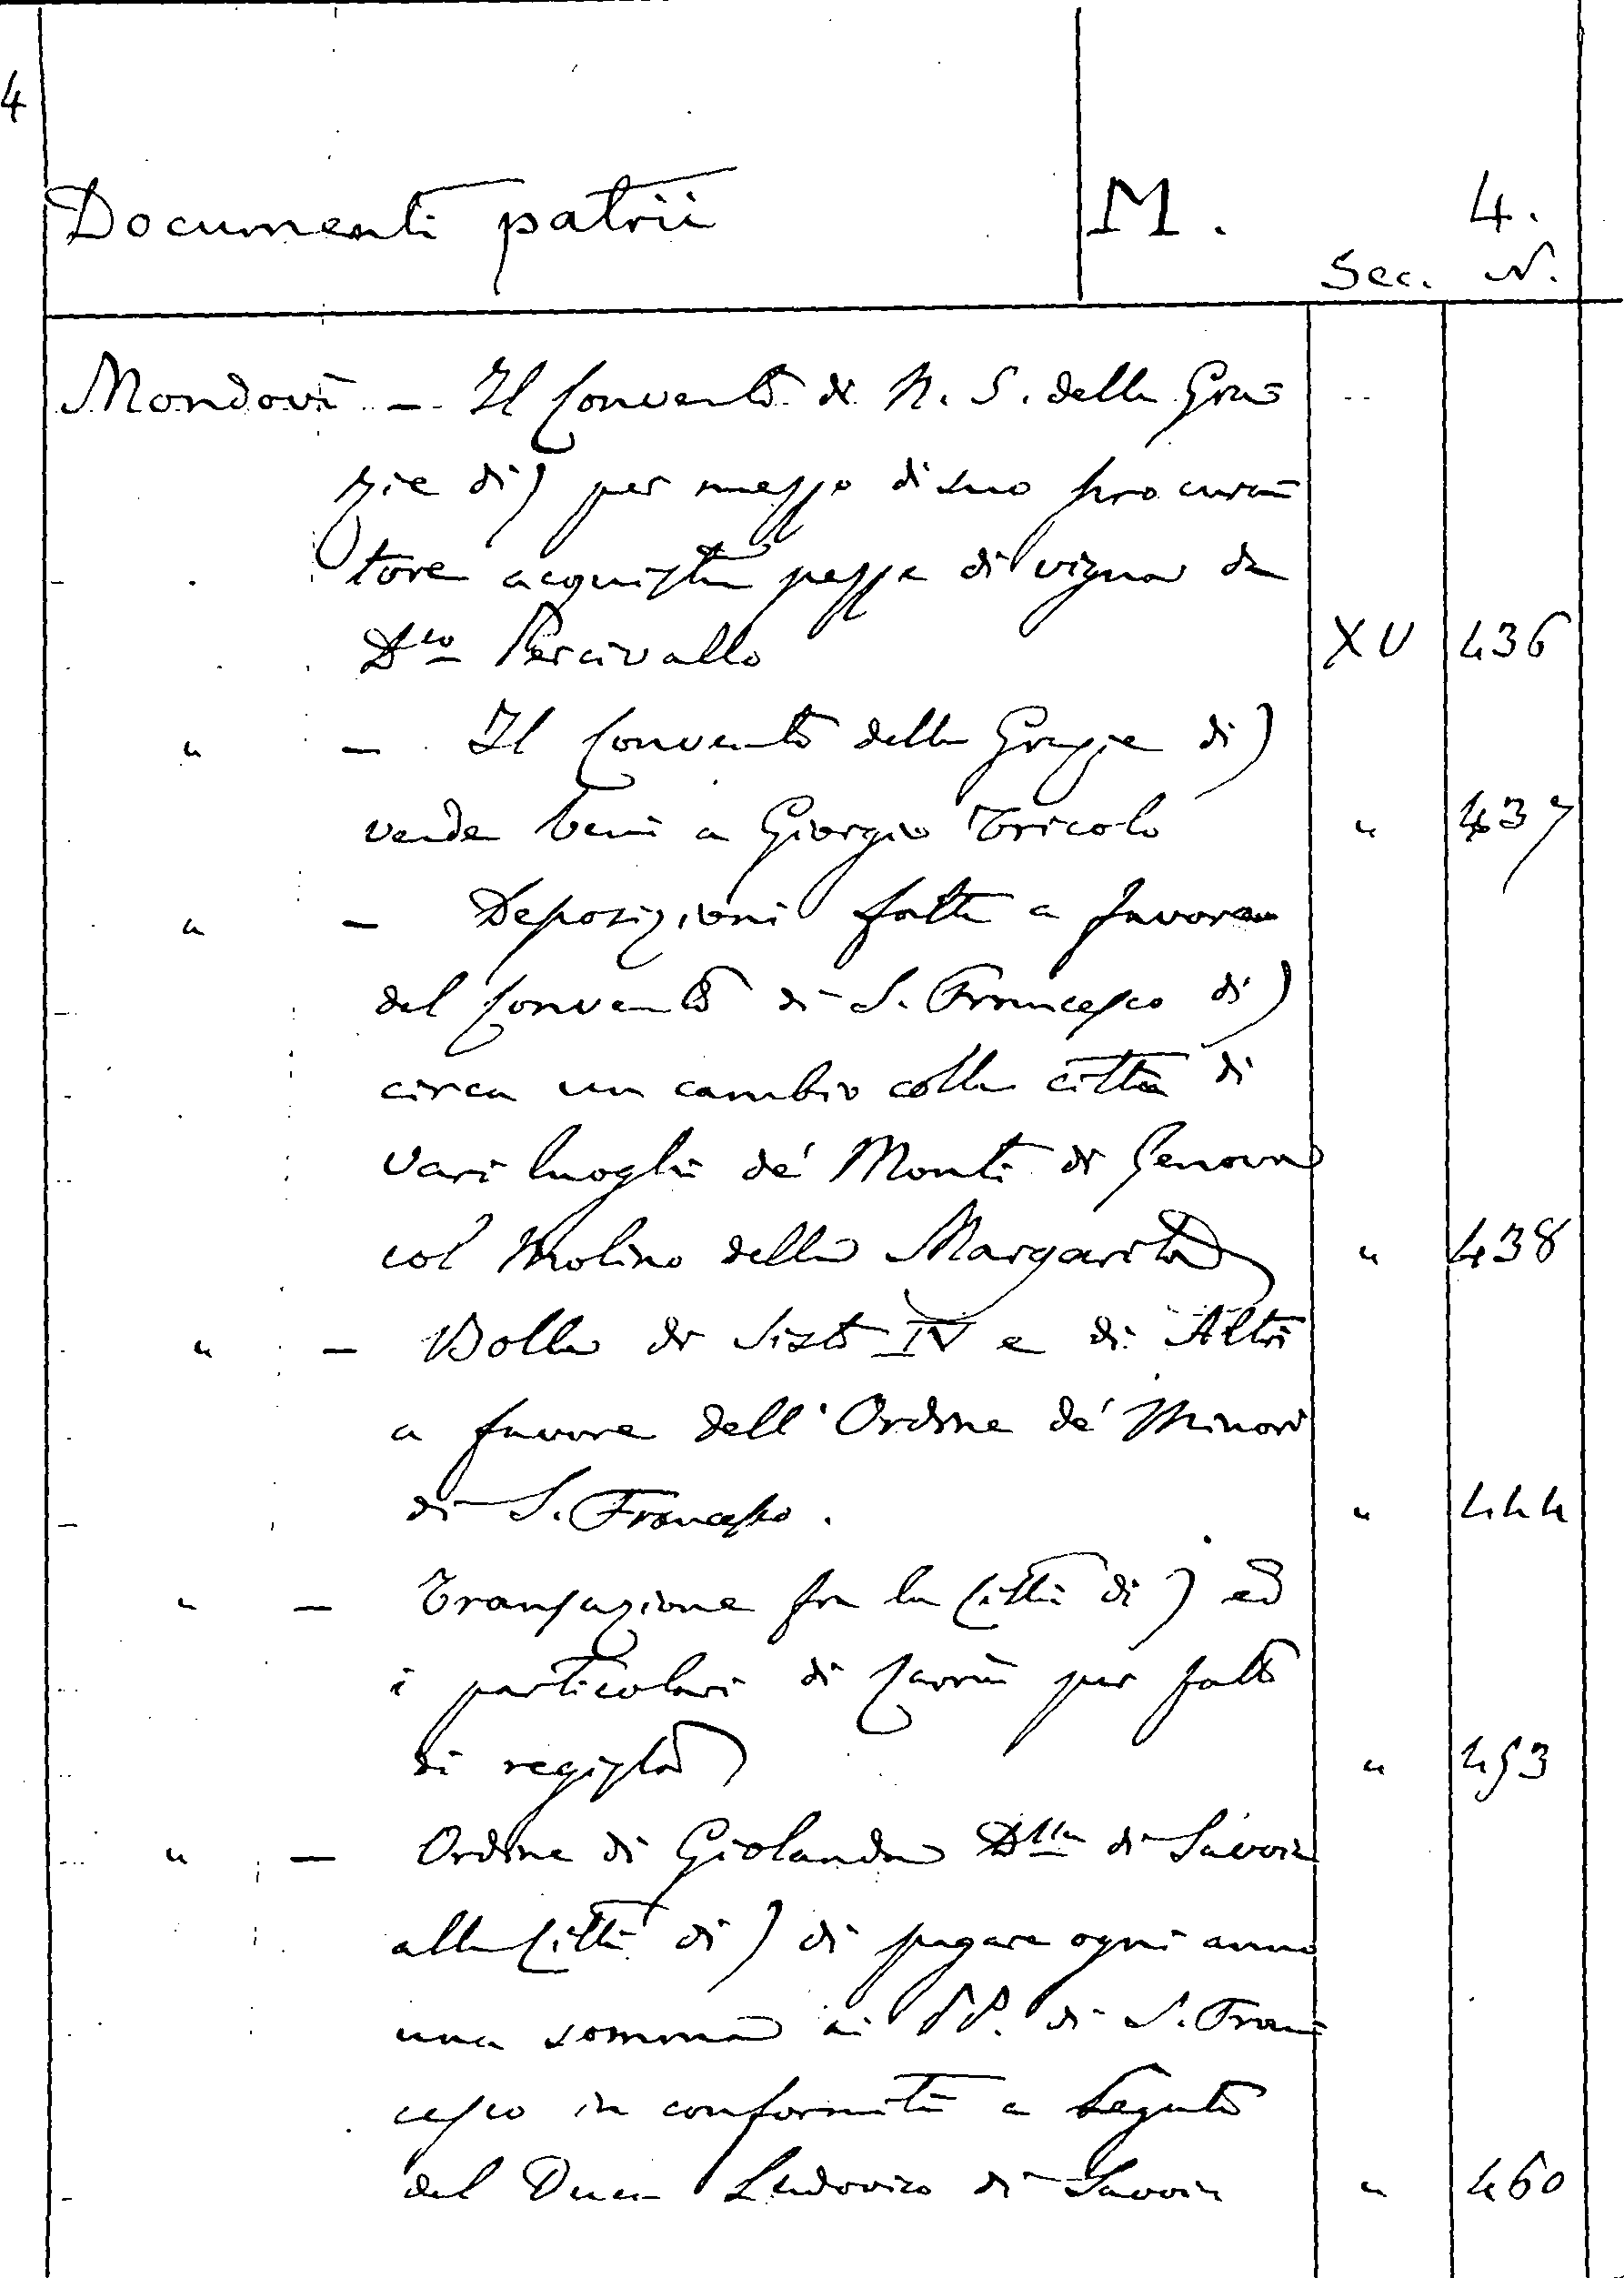 4
Documenti patrii M. 4.
Sec. N.
Mondovì - Il Convento di N. S. delle Gra-
zie di) per mezzo di suo procura-
tore acquista pezza di vigna da
D.co Percivallo XV 436
" - Il Convento delle Grazie di)
vende beni a Giorgio Tricolo " 437
" - Deposizioni fatte a favore
del Convento di S. Francesco di)
circa un cambio colla città di
vari luoghi de' Monti di Genova
col Molino della Margarita " 438
" - Bolla di Sisto IV e di Altri
a favore dell'Ordine de' Minori
di S. Francesco. " 444
" - Transazione fra la Città di) ed
i particolari di Carrù per fatto
di registro " 453
" - Ordine di Giolanda D.ssa di Savoia
alla Città di) di pagare ogni anno
una somma ai PP. di S. Fran-
cesco in conformità a Legato
del Duca Ludovico di Savoia " 460